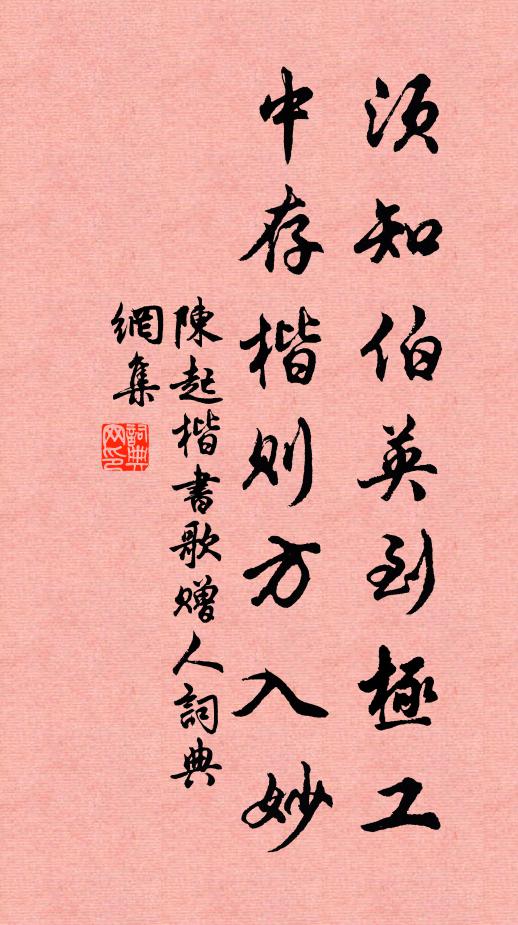 須知伯英到極工
中存楷則方入妙
陳起楷書歌贈人詞典
網集
詞典網印